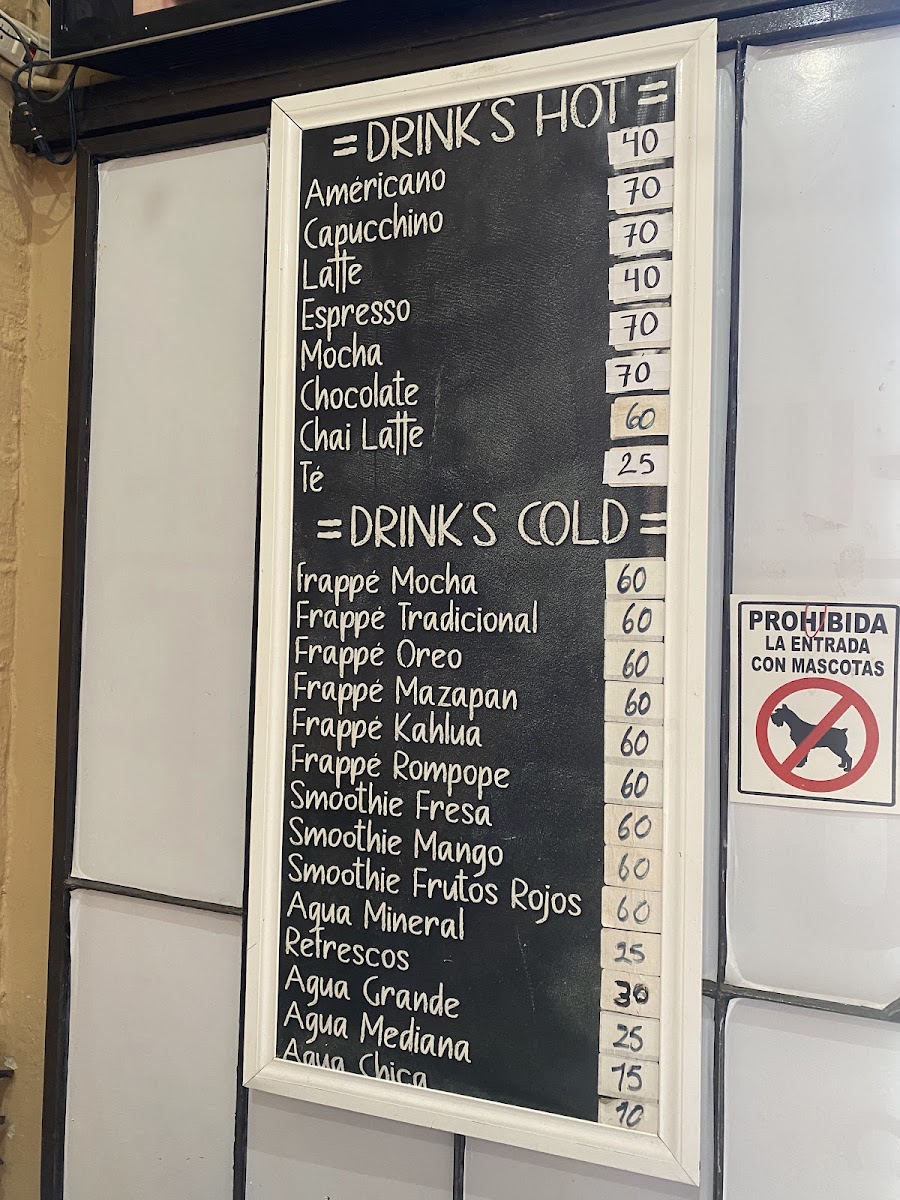 =DRINK'S HOT=
Américano 40
Capucchino 70
Latte 70
Espresso 40
Mocha 70
Chocolate 70
Chai Latte 60
Té 25
=DRINK'S COLD=
Frappé Mocha 60
Frappé Tradicional 60
Frappé Oreo 60
Frappé Mazapan 60
Frappé Kahlua 60
Frappé Rompope 60
Smoothie Fresa 60
Smoothie Mango 60
Smoothie Frutos Rojos 60
Agua Mineral 25
Refrescos 30
Agua Grande 25
Agua Mediana 15
Agua Chica 10
PROHIBIDA
LA ENTRADA
CON MASCOTAS